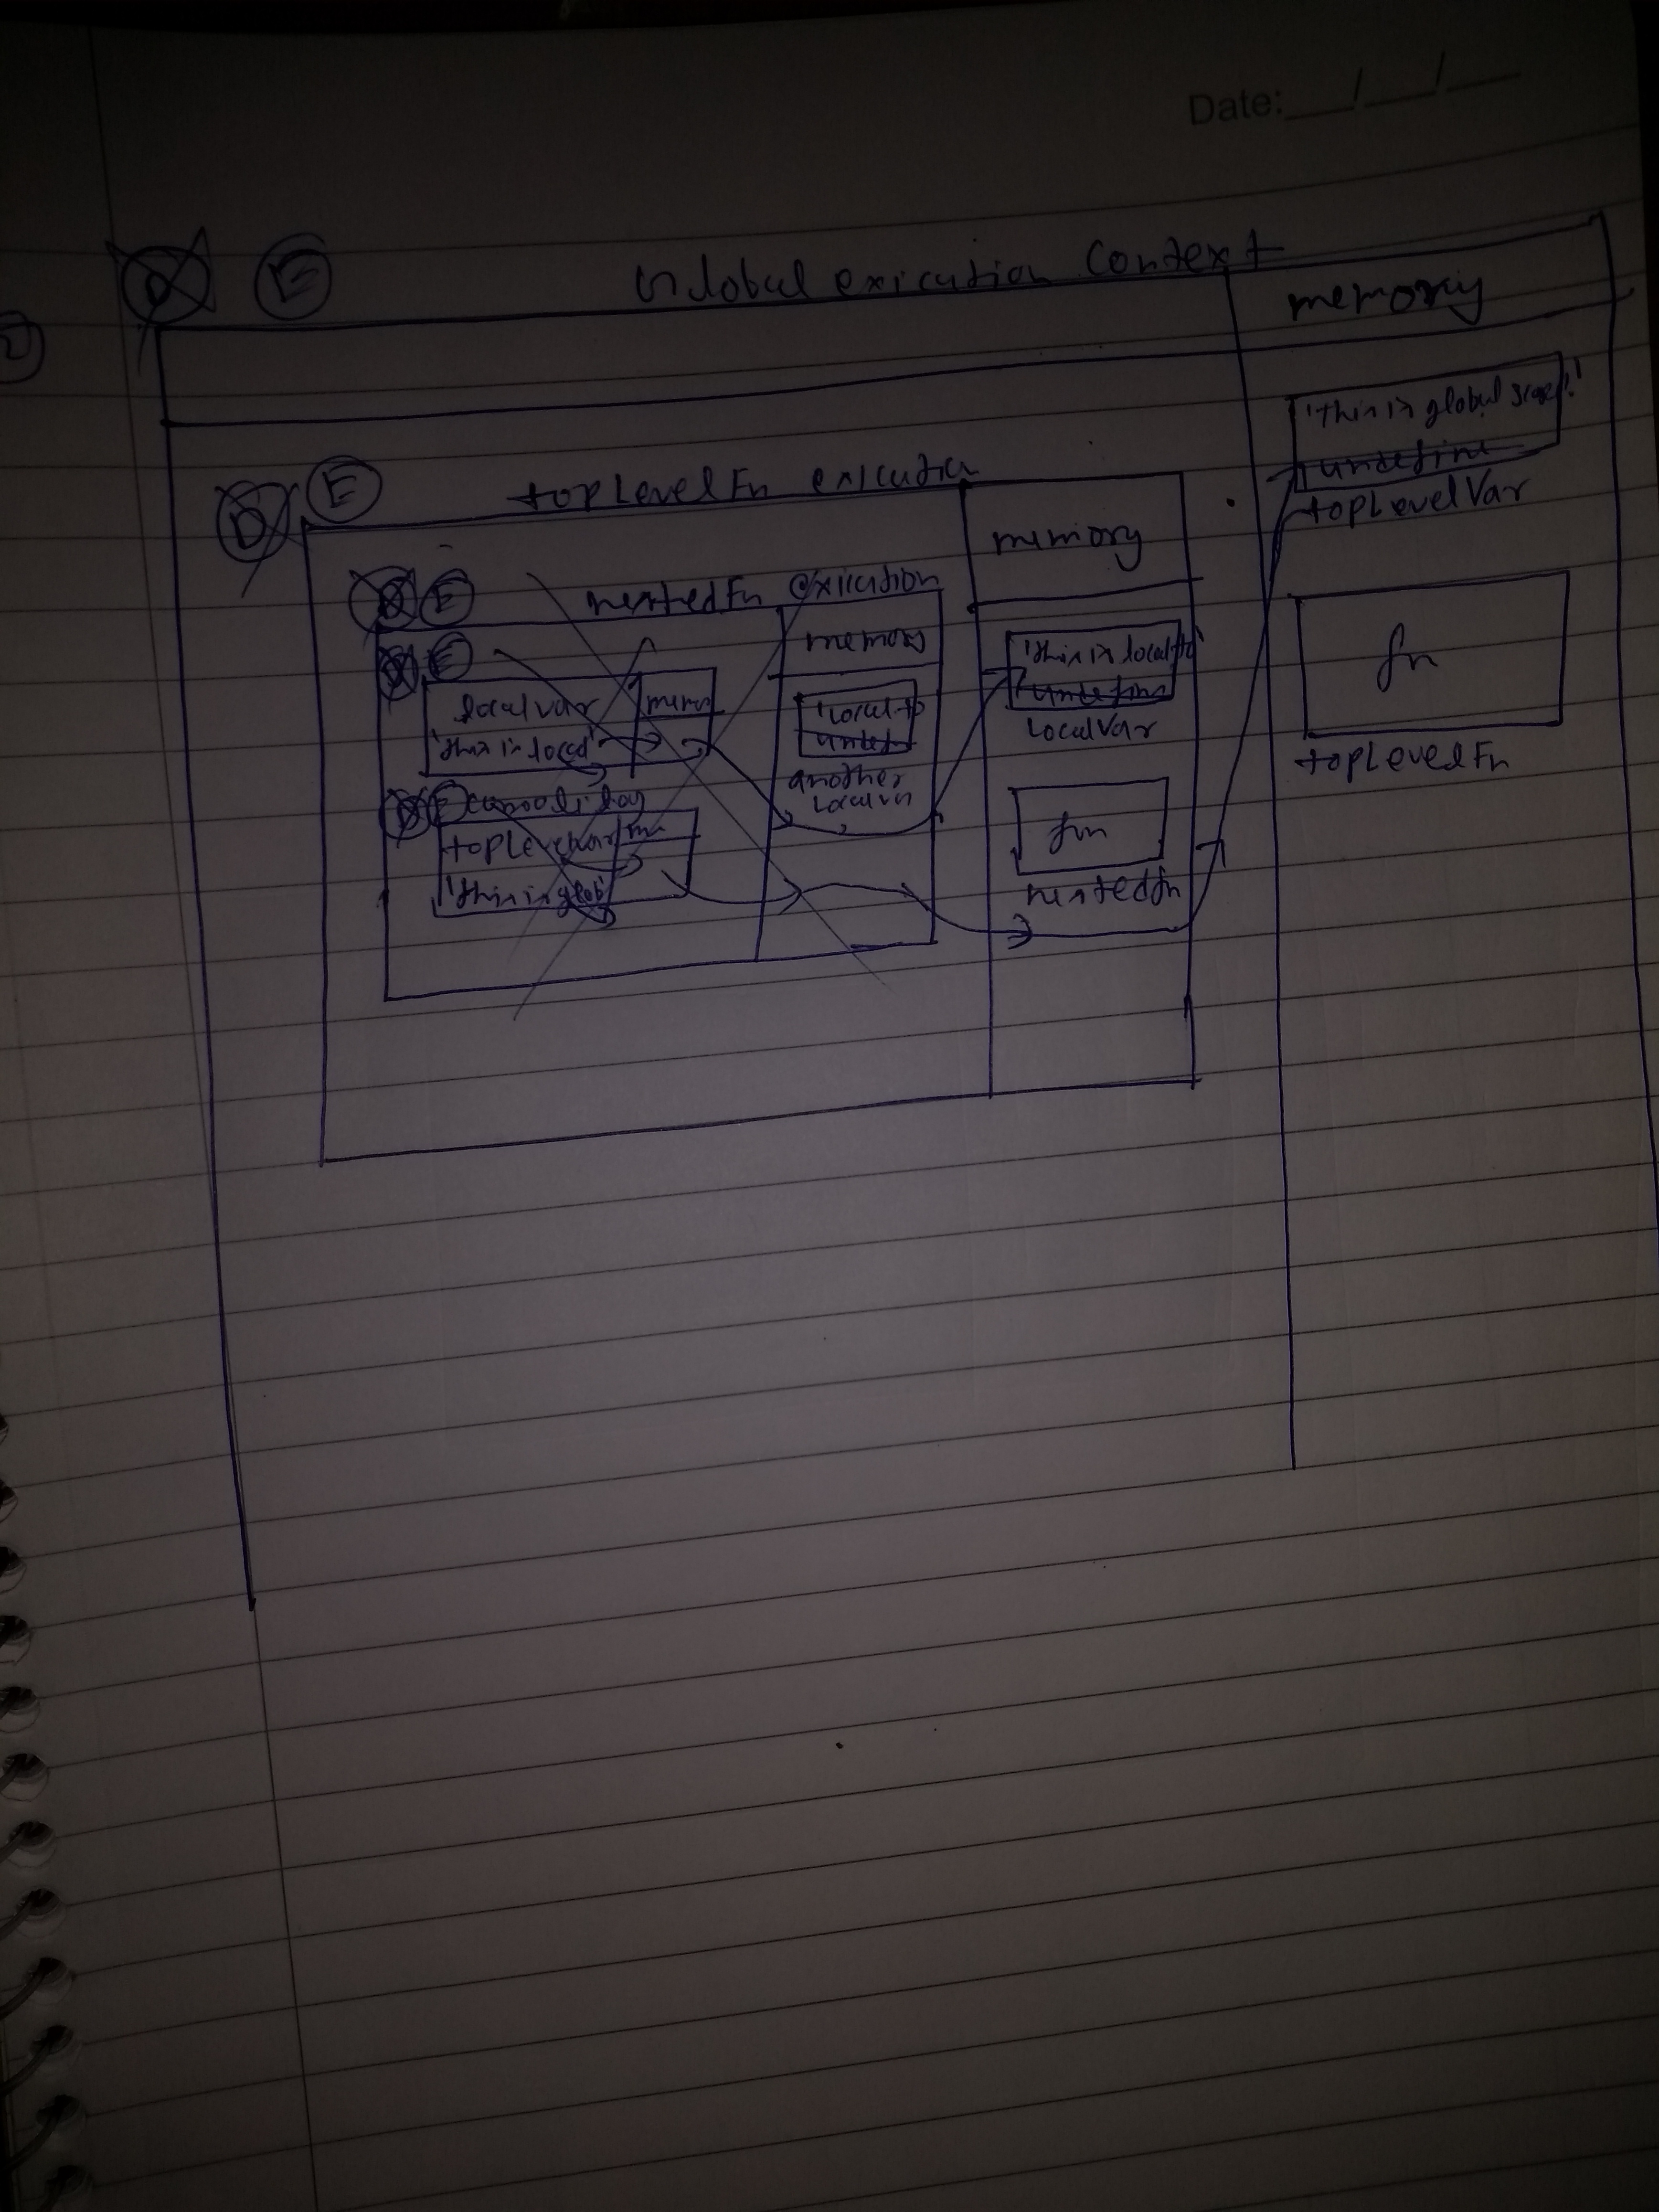 Date:
D E Global exicution context
memory
'this is global scope!'
undefine
topLevelVar
fn
topLevelFn
D E topLevelFn exicution
memory
'this is local to
undefine
localVar
fn
nestedfn
D E nestedFn exicution
memory
'local to
undefi
another
localvar
E
localvar
'this is local'
E
topLevelvar
'this is glob'